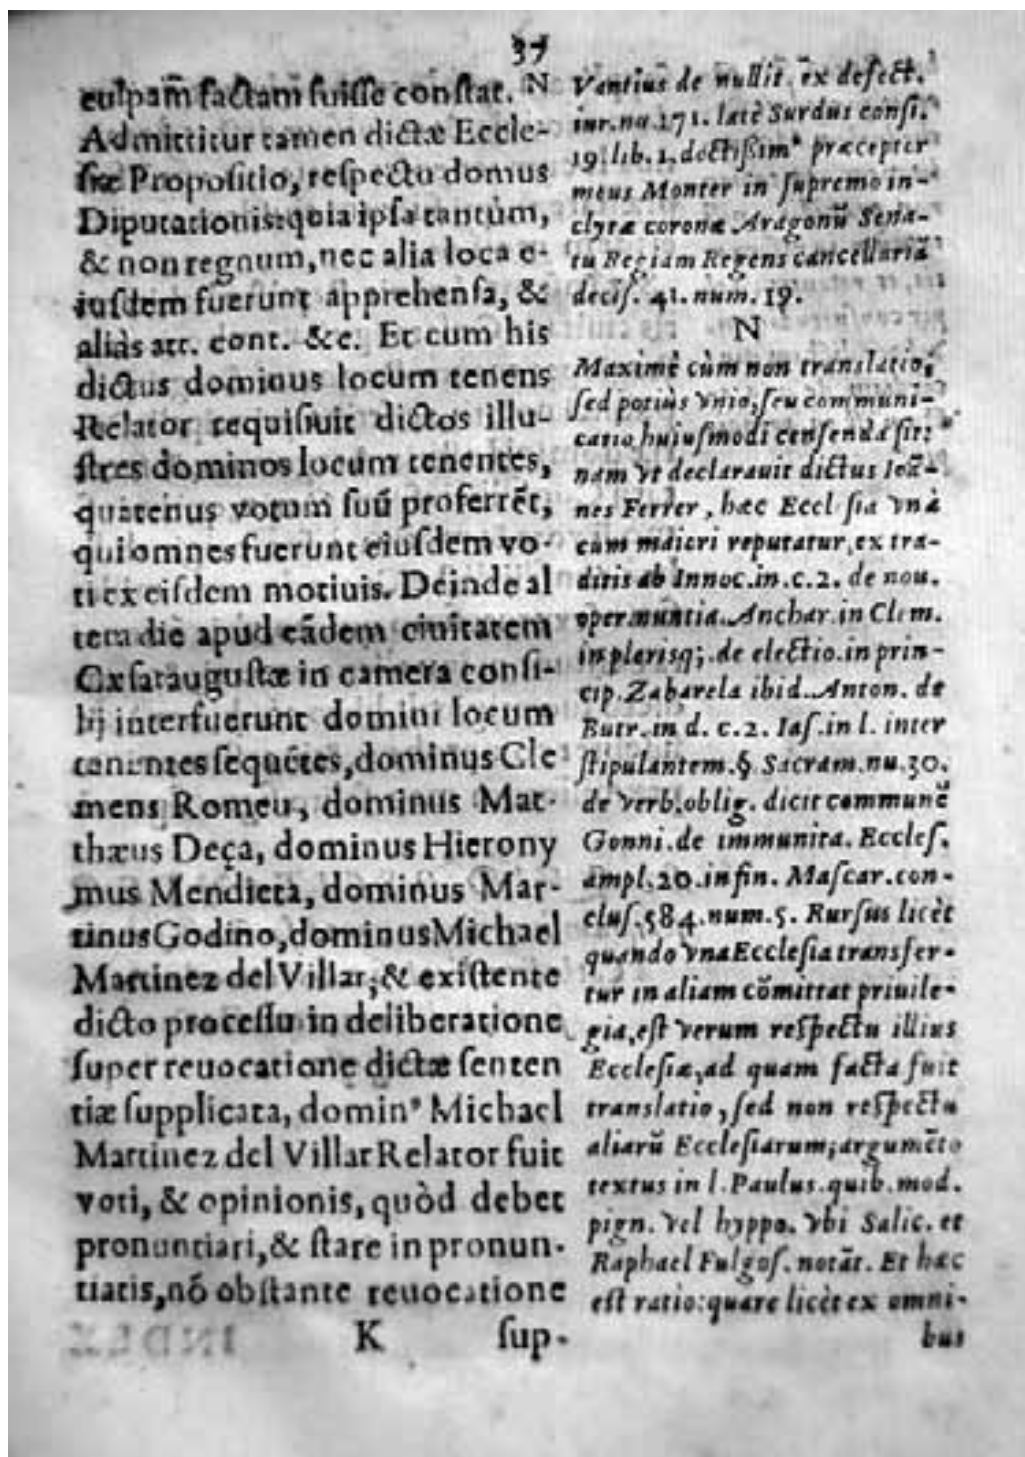 37
culpam̃ factam fuisse constat. N
Admittitur tamen dictæ Eccle-
siæ Propositio, respectu domus
Diputationis: quia ipsa tantùm,
& non regnum, nec alia loca e-
iusdem fuerunt apprehensa, &
aliàs att. cont. &c. Et cum his
dictus dominus locum tenens
Relator requisiuit dictos illu-
stres dominos locum tenentes,
quatenus votum suũ proferrẽt,
qui omnes fuerunt eiusdem vo-
ti ex eisdem motiuis. Deinde al
tera die apud eãdem ciuitatem
Cæsaraugustæ in camera consi-
lij interfuerunt domini locum
tenentes sequẽtes, dominus Cle
mens Romeu, dominus Mat-
thæus Deça, dominus Hierony
mus Mendieta, dominus Mar-
tinus Godino, dominus Michael
Martinez del Villar; & existente
dicto processu in deliberatione
super reuocatione dictæ senten
tiæ supplicata, domin⁹ Michael
Martinez del Villar Relator fuit
voti, & opinionis, quòd debet
pronuntiari, & stare in pronun-
tiatis, nõ obstante reuocatione
K sup-
Vantius de nullit. ex defect.
iur. nu. 171. latè Surdus consi.
19. lib. 1. doctißim⁹ præceptor
meus Monter in supremo in-
clytæ coronæ Aragonũ Sena-
tu Regiam Regens cancellariã
decis. 41. num. 19.
N
Maximè cùm non translatio,
sed potiùs vnio, seu communi-
catio huiusmodi censenda sit:
nam vt declarauit dictus Ioã-
nes Ferrer, hæc Ecclesia vnà
cum maiori reputatur, ex tra-
ditis ab Innoc. in. c. 2. de nou.
oper. nuntia. Anchar. in Clem.
in plerisq; de electio. in prin-
cip. Zabarela ibid. Anton. de
Butr. in d. c. 2. Ias. in l. inter
stipulantem. §. Sacram. nu. 30.
de verb. oblig. dicit communẽ
Gonni. de immunita. Eccles.
ampl. 20. in fin. Mascar. con-
clus. 584. num. 5. Rursus licèt
quando vna Ecclesia transfer-
tur in aliam cõmittat priuile-
gia, est verum respectu illius
Ecclesiæ, ad quam facta fuit
translatio, sed non respectu
aliarũ Ecclesiarum; argumẽto
textus in l. Paulus. quib. mod.
pign. vel hyppo. vbi Salic. et
Raphael Fulgos. notãt. Et hæc
est ratio: quare licèt ex omni-
bus